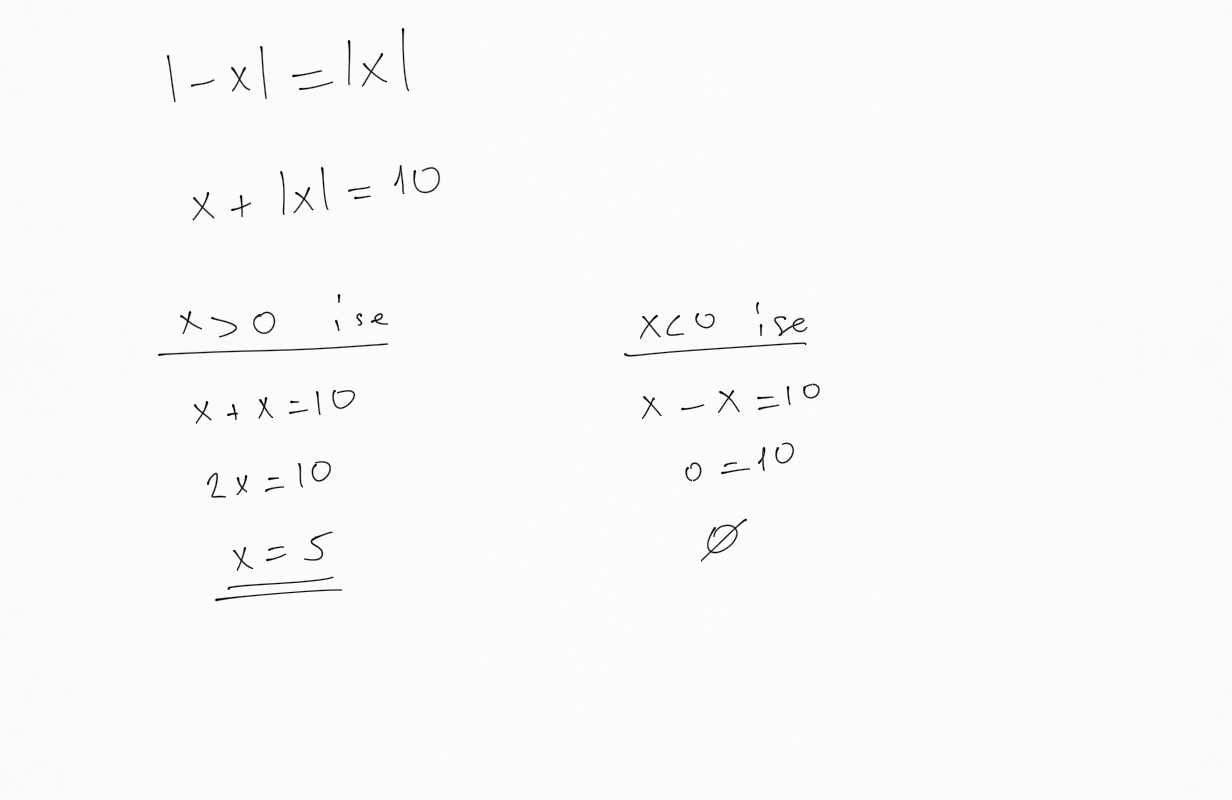 |-x| = |x|
x + |x| = 10
x > 0 ise
x + x = 10
2x = 10
x = 5
x < 0 ise
x - x = 10
0 = 10
∅